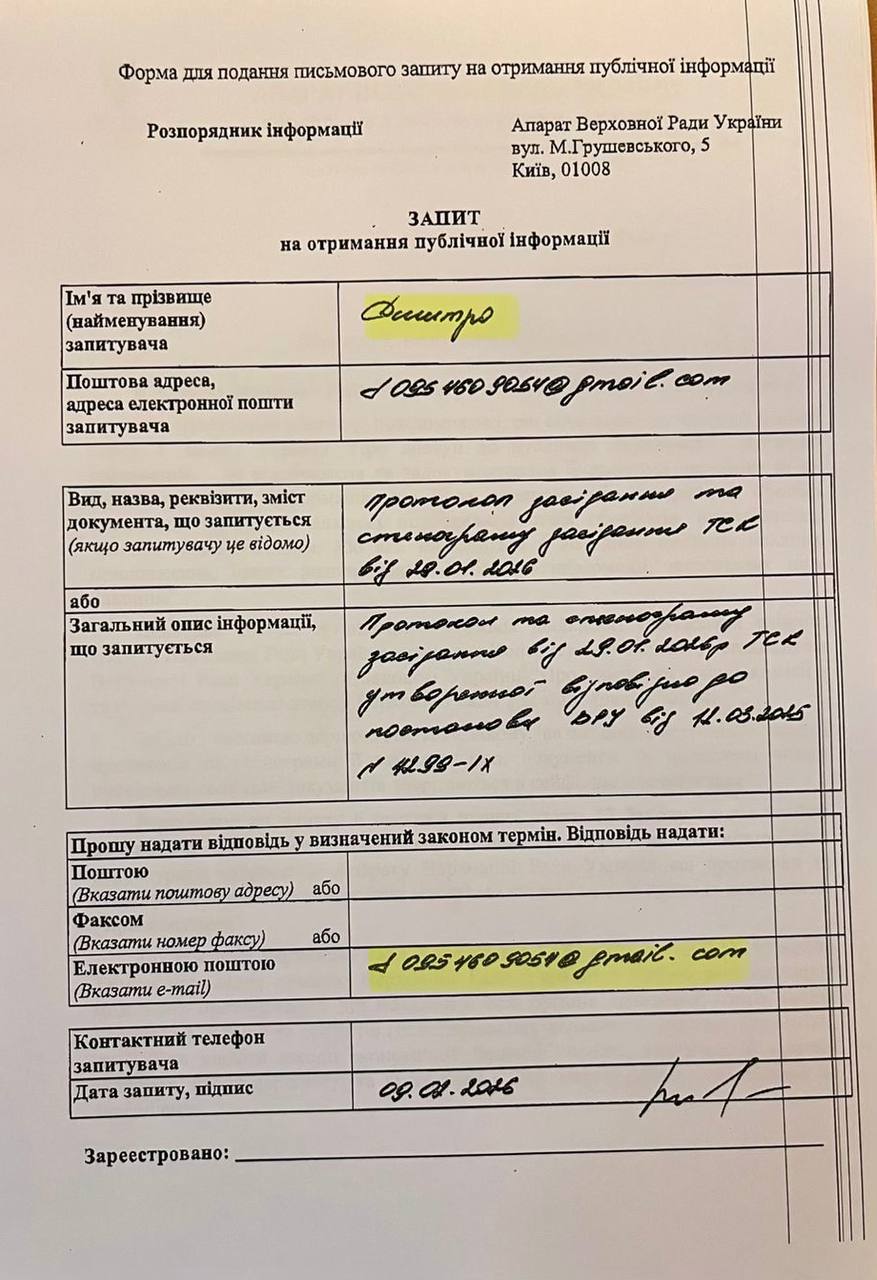 Форма для подання письмового запиту на отримання публічної інформації
Розпорядник інформації
Апарат Верховної Ради України
вул. М.Грушевського, 5
Київ, 01008
ЗАПИТ
на отримання публічної інформації
Ім'я та прізвище
(найменування)
запитувача
Дмитро
Поштова адреса,
адреса електронної пошти
запитувача
d0954609054@gmail.com
Вид, назва, реквізити, зміст
документа, що запитується
(якщо запитувачу це відомо)
Протокол засідання та
стенограму засідання ТСК
від 29.01.2026
або
Загальний опис інформації,
що запитується
Протокол та стенограму
засідання від 29.01.2026р ТСК
утвореної відповідно до
постанови ВРУ від 12.03.2025
№ 4299-IX
Прошу надати відповідь у визначений законом термін. Відповідь надати:
Поштою
(Вказати поштову адресу) або
Факсом
(Вказати номер факсу) або
Електронною поштою
(Вказати e-mail)
d0954609054@gmail.com
Контактний телефон
запитувача
Дата запиту, підпис
09.02.2026
Зареєстровано: